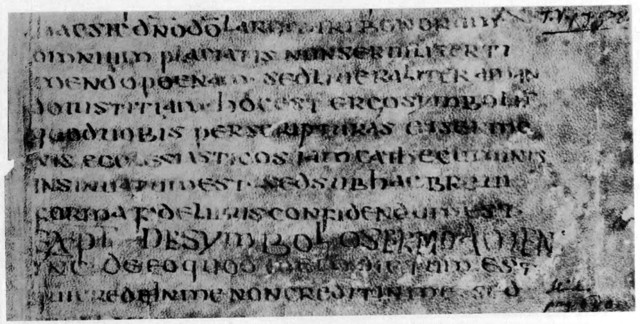 DNO DO LARGITORI BONORUM
OMNIUM NON SERUILITER TI
MENDO POENAM SED LIBERALITER AMAN
DO IUSTITIAM HOC EST ERGO
QUOD UOBIS PER SCRIPTURAS ET SERMO
NIS ECCLESIASTICOS IAM CATHECUMINIS
INSINUATUM EST SED SUB HAC BREUI
FORMA FIDELIBUS CONFIDENDUM EST
EXPL DE SYMBOLO SERMO AMEN
INC DE EO QUOD EST
IN ME NON CREDIT IN ME SED